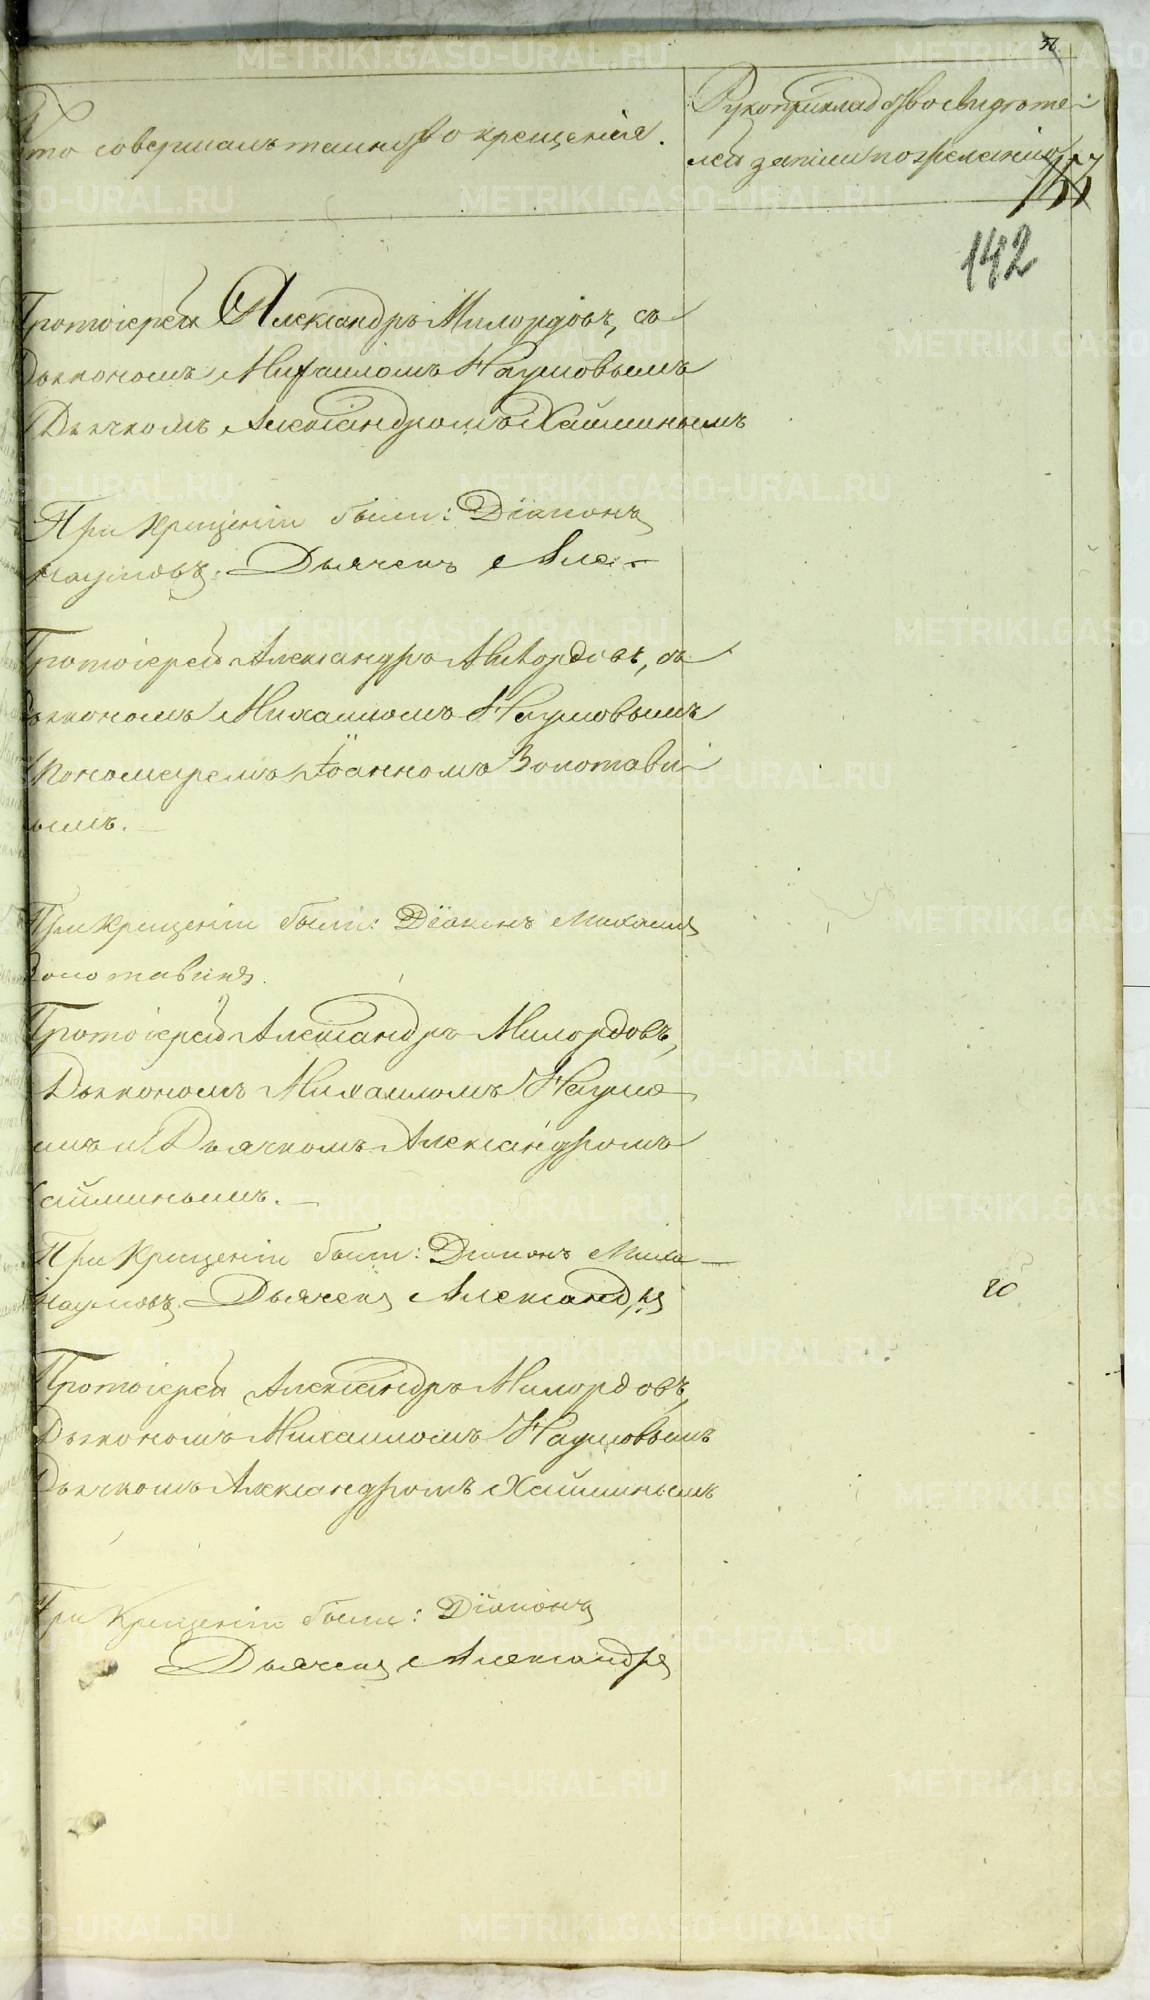 Кто совершалъ таинство крещенія.
Рукоприкладство свидѣте-
лей записи по желанію
142
Протоіерей Александръ Милордовъ, съ
Дьякономъ Михаиломъ Наумовымъ
Дьячкомъ Александромъ Хайминымъ
При Крещеніи были: Діаконъ
Наумовъ. Дьячекъ Але-
Протоіерей Александръ Милордовъ, съ
Дьякономъ Михаиломъ Наумовымъ
Пономаремъ Іоанномъ Золотави-
ымъ.
При Крещеніи были: Діаконъ Михаилъ
Золотавинъ.
Протоіерей Александръ Милордовъ,
Дьякономъ Михаиломъ Наумо-
ымъ и Дьячкомъ Александромъ
Хайминымъ.
При Крещеніи были: Діаконъ Миха-
Наумовъ. Дьячекъ Александръ
20
Протоіерей Александръ Милордовъ,
Дьякономъ Михаиломъ Наумовымъ
Дьячкомъ Александромъ Хайминымъ
При Крещеніи были: Діаконъ
Дьячекъ Александръ
METRIKI.GASO-URAL.RU